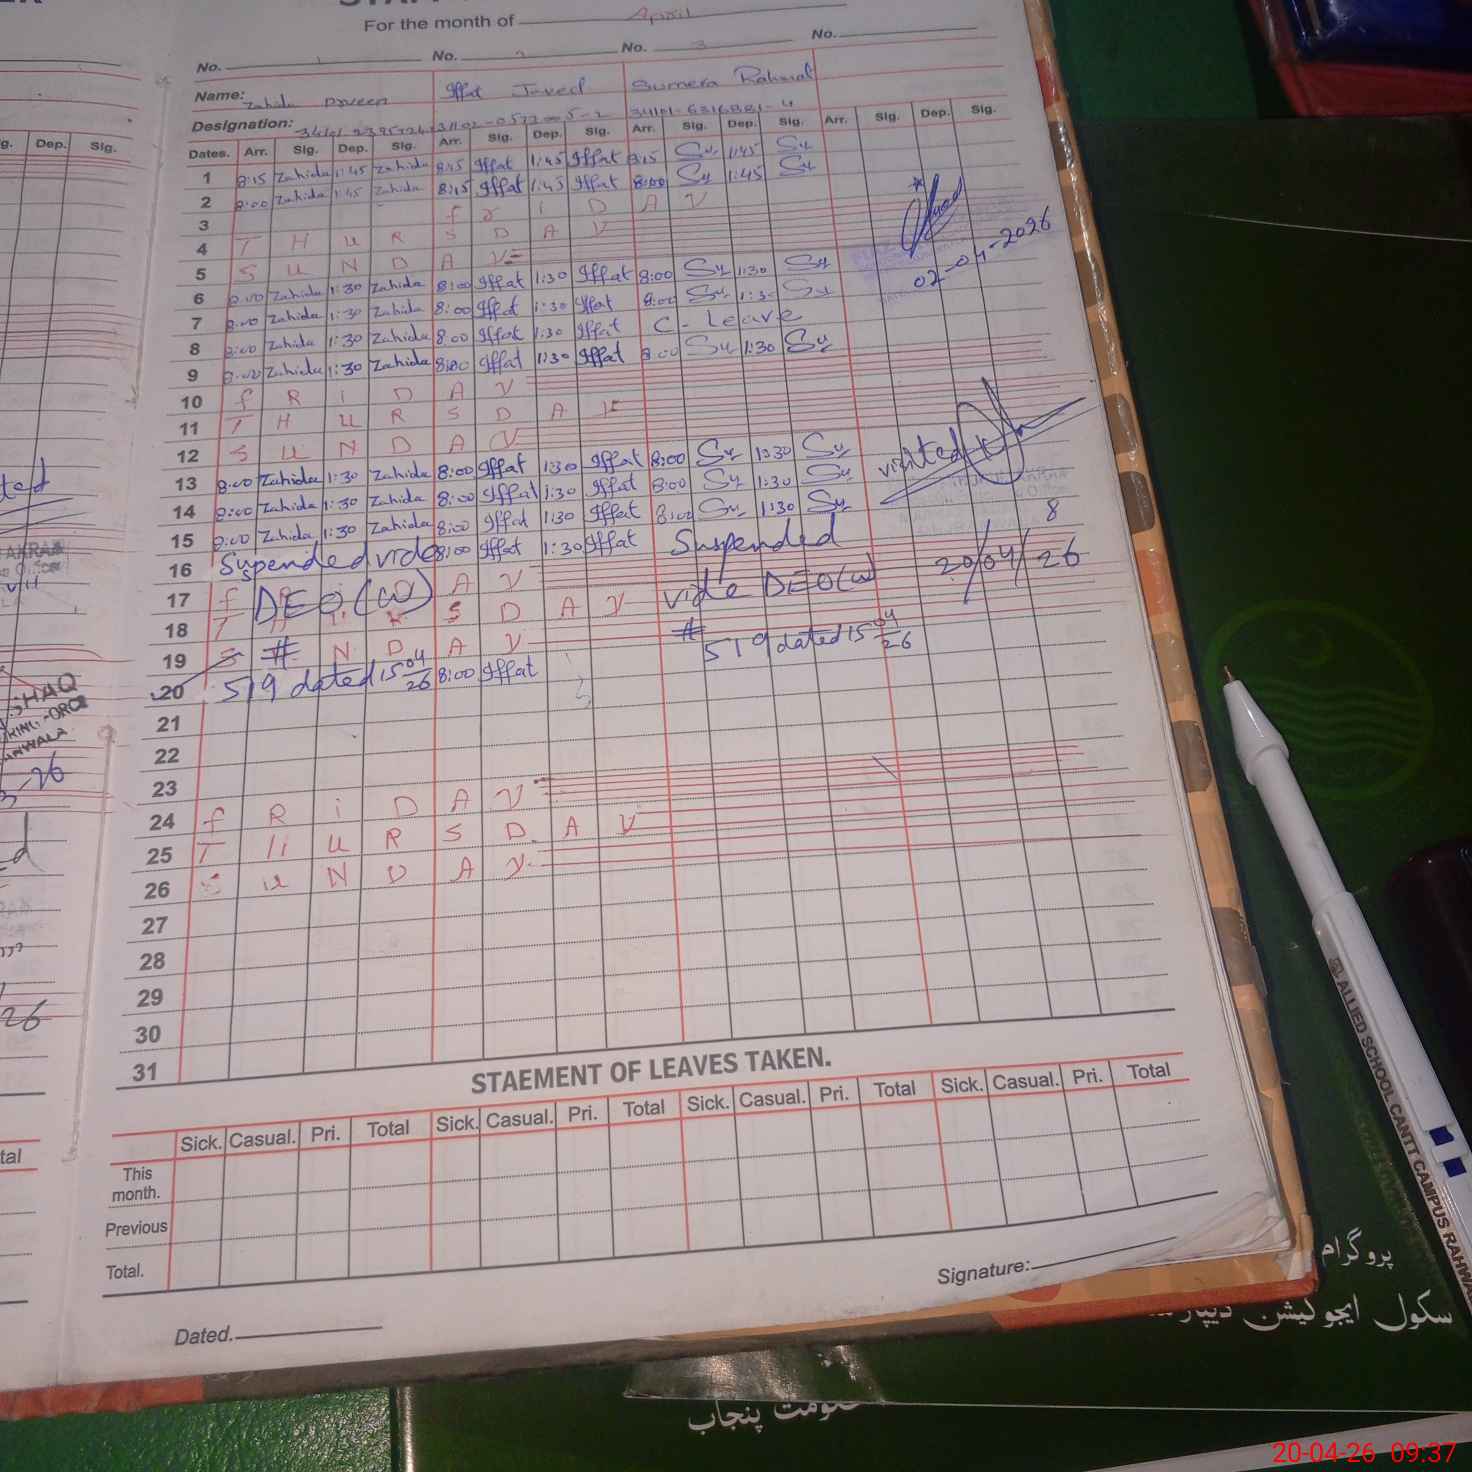 For the month of April
No. 1 No. 2 No. 3 No.
Name: Zahida Parveen Iffat Javed Sumera Rahmat
Designation:
Dates. Arr. Sig. Dep. Sig. Arr. Sig. Dep. Sig. Arr. Sig. Dep. Sig. Arr. Sig. Dep. Sig.
1 8:15 Zahida 1:45 Zahida 8:15 Iffat 1:45 Iffat 8:15 Su 1:45 Su
2 8:00 Zahida 1:45 Zahida 8:15 Iffat 1:45 Iffat 8:00 Su 1:45 Su
3 f r i D A Y
4 T H U R S D A Y
5 S U N D A Y
02-04-2026
6 8:00 Zahida 1:30 Zahida 8:00 Iffat 1:30 Iffat 8:00 Su 1:30 Su
7 8:00 Zahida 1:30 Zahida 8:00 Iffat 1:30 Iffat 8:00 Su 1:30 Su
8 8:00 Zahida 1:30 Zahida 8:00 Iffat 1:30 Iffat C. Leave
9 8:00 Zahida 1:30 Zahida 8:00 Iffat 1:30 Iffat 8:00 Su 1:30 Su
10 f R i D A Y
11 T H U R S D A Y
12 S U N D A Y
visited
13 8:00 Zahida 1:30 Zahida 8:00 Iffat 1:30 Iffat 8:00 Su 1:30 Su
14 8:00 Zahida 1:30 Zahida 8:00 Iffat 1:30 Iffat 8:00 Su 1:30 Su
15 8:00 Zahida 1:30 Zahida 8:00 Iffat 1:30 Iffat 8:00 Su 1:30 Su
16 Supended vide 8:00 Iffat 1:30 Iffat Suspended
20/04/26
17 f DEO(W) A Y vide DEO(W)
18 T S D A Y
19 S # N D A Y # 519 dated 15 04/26
20 519 dated 15 04/26 8:00 Iffat
21
22
23
24 f R i D A Y
25 T H U R S D A Y
26 S U N D A Y
27
28
29
30
31
STAEMENT OF LEAVES TAKEN.
Sick. Casual. Pri. Total Sick. Casual. Pri. Total Sick. Casual. Pri. Total Sick. Casual. Pri. Total
This
month.
Previous
Total.
Signature:
Dated.
g. Dep. Sig.
tal
ALLIED SCHOOL CANTT CAMPUS RAHWA
پروگرام
سکول ایجوکیشن
حکومت پنجاب
20-04-26 09:37